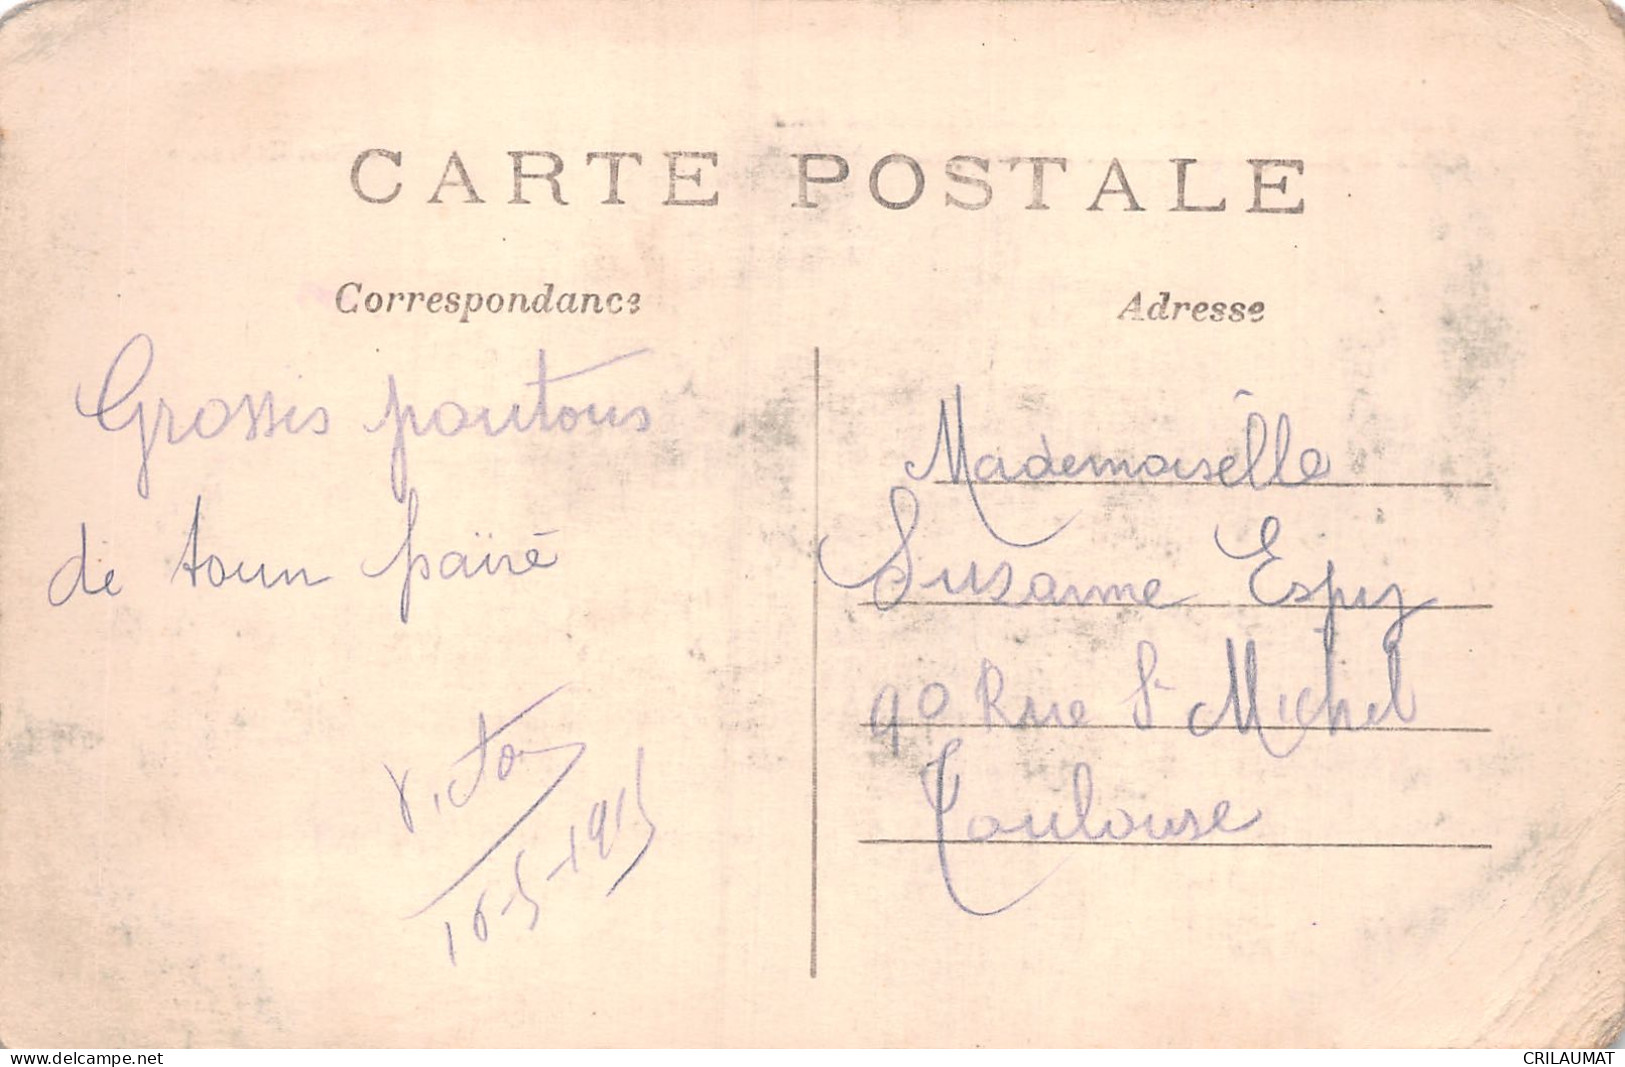 CARTE POSTALE
Correspondance
Grossis poutous
de toun païré
Victor
16-5-1915
Adresse
Mademoiselle
Suzanne Espy
90 Rue St Michel
Toulouse
www.delcampe.net
CRILAUMAT